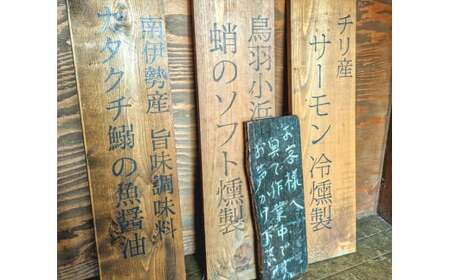 チリ産
サーモン 冷燻製
鳥羽小浜
蛸のソフト燻製
お客様へ
奥で作業中です
お声かけ下さい
南伊勢産 旨味調味料
カタクチ鰯の魚醤油